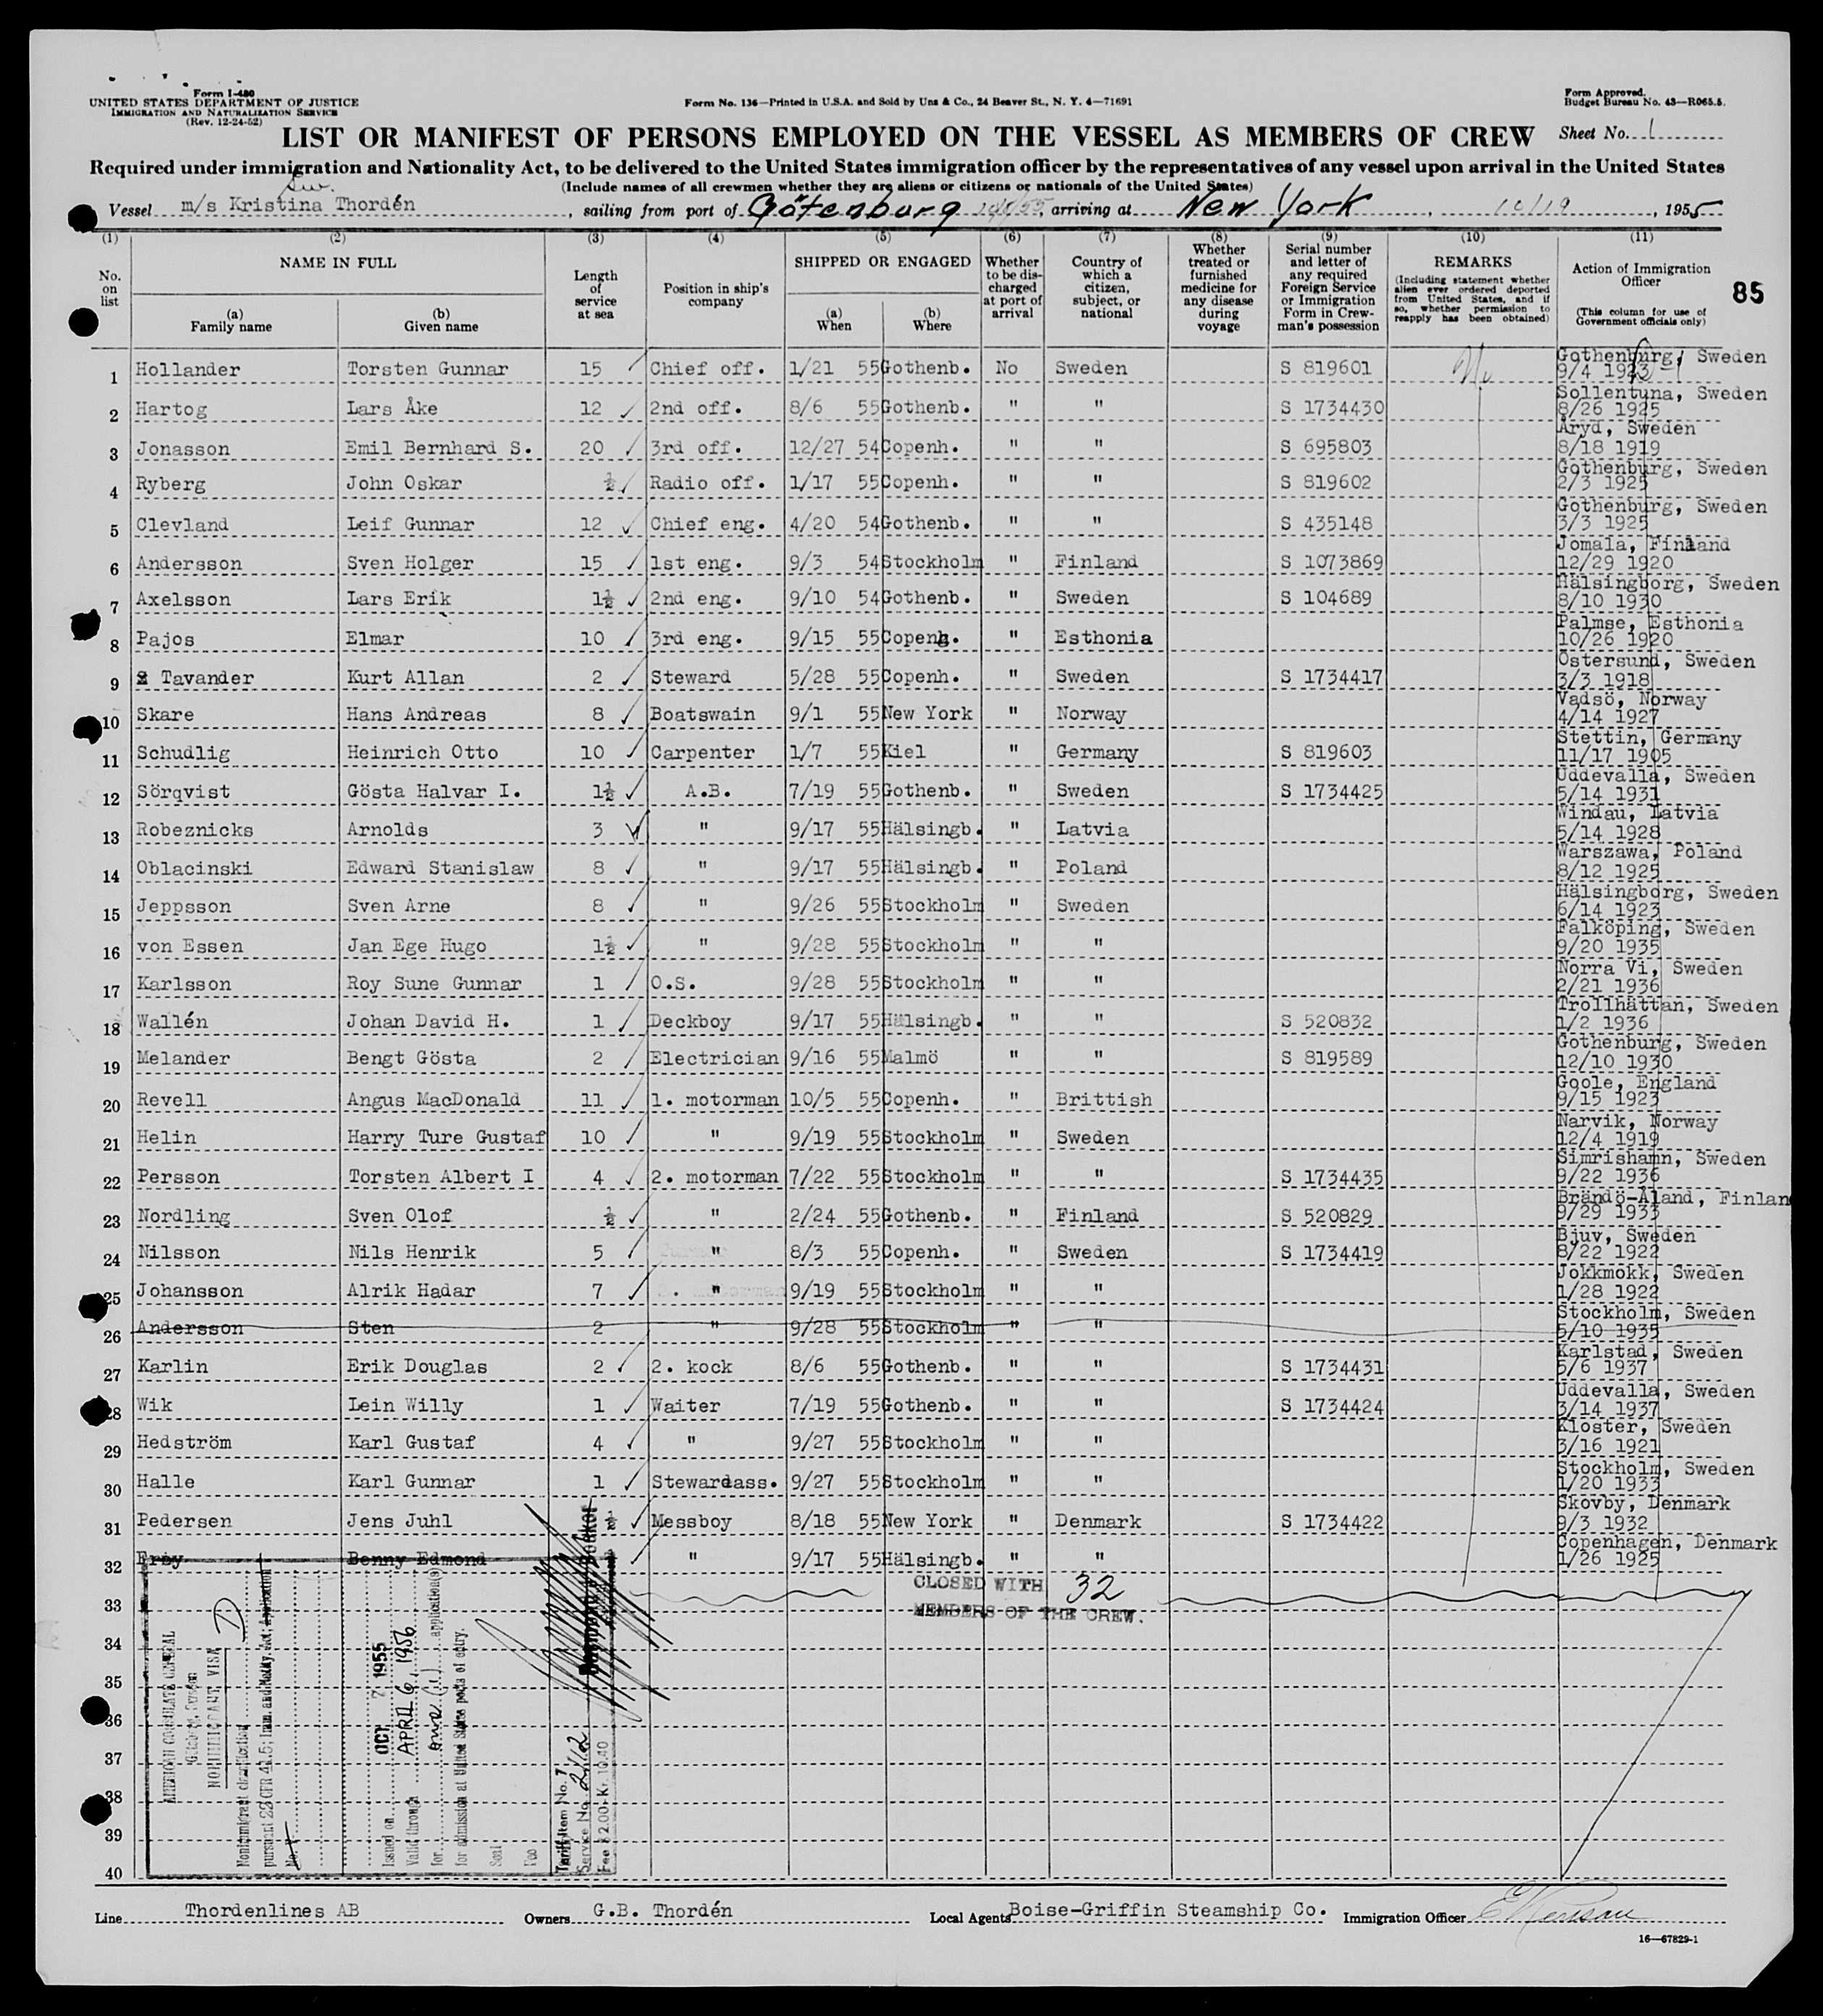 Form I-480
UNITED STATES DEPARTMENT OF JUSTICE
IMMIGRATION AND NATURALIZATION SERVICE
(Rev. 12-24-52)
Form No. 136—Printed in U.S.A. and Sold by Unz & Co., 24 Beaver St., N. Y. 4—71691
Form Approved.
Budget Bureau No. 43—R065.5.
LIST OR MANIFEST OF PERSONS EMPLOYED ON THE VESSEL AS MEMBERS OF CREW
Sheet No. 1
Required under immigration and Nationality Act, to be delivered to the United States immigration officer by the representatives of any vessel upon arrival in the United States
(Include names of all crewmen whether they are aliens or citizens or nationals of the United States)
Sw.
Vessel m/s Kristina Thordén, sailing from port of Götenburg, arriving at New York, 10/19, 1955
(1) (2) (3) (4) (5) (6) (7) (8) (9) (10) (11)
No. on list
NAME IN FULL
(a) Family name
(b) Given name
Length of service at sea
Position in ship's company
SHIPPED OR ENGAGED
(a) When
(b) Where
Whether to be discharged at port of arrival
Country of which a citizen, subject, or national
Whether treated or furnished medicine for any disease during voyage
Serial number and letter of any required Foreign Service or Immigration Form in Crewman's possession
REMARKS
(Including statement whether alien ever ordered deported from United States, and if so, whether permission to reapply has been obtained)
Action of Immigration Officer
(This column for use of Government officials only)
85
1 Hollander Torsten Gunnar 15 Chief off. 1/21 55 Gothenb. No Sweden S 819601 Gothenburg, Sweden 9/4 1923
2 Hartog Lars Åke 12 2nd off. 8/6 55 Gothenb. " " S 1734430 Sollentuna, Sweden 8/26 1925
3 Jonasson Emil Bernhard S. 20 3rd off. 12/27 54 Copenh. " " S 695803 Aryd, Sweden 8/18 1919
4 Ryberg John Oskar ½ Radio off. 1/17 55 Copenh. " " S 819602 Gothenburg, Sweden 2/3 1925
5 Clevland Leif Gunnar 12 Chief eng. 4/20 54 Gothenb. " " S 435148 Gothenburg, Sweden 3/3 1925
6 Andersson Sven Holger 15 1st eng. 9/3 54 Stockholm " Finland S 1073869 Jomala, Finland 12/29 1920
7 Axelsson Lars Erik 1½ 2nd eng. 9/10 54 Gothenb. " Sweden S 104689 Hälsingborg, Sweden 8/10 1930
8 Pajos Elmar 10 3rd eng. 9/15 55 Copenh. " Esthonia Palmse, Esthonia 10/26 1920
9 Tavander Kurt Allan 2 Steward 5/28 55 Copenh. " Sweden S 1734417 Östersund, Sweden 3/3 1918
10 Skare Hans Andreas 8 Boatswain 9/1 55 New York " Norway Vadsö, Norway 4/14 1927
11 Schudlig Heinrich Otto 10 Carpenter 1/7 55 Kiel " Germany S 819603 Stettin, Germany 11/17 1905
12 Sörqvist Gösta Halvar I. 1½ A.B. 7/19 55 Gothenb. " Sweden S 1734425 Uddevalla, Sweden 5/14 1931
13 Robeznicks Arnolds 3 " 9/17 55 Hälsingb. " Latvia Windau, Latvia 5/14 1928
14 Oblacinski Edward Stanislaw 8 " 9/17 55 Hälsingb. " Poland Warszawa, Poland 8/12 1925
15 Jeppsson Sven Arne 8 " 9/26 55 Stockholm " Sweden Hälsingborg, Sweden 6/14 1923
16 von Essen Jan Ege Hugo 1½ " 9/28 55 Stockholm " " Falköping, Sweden 9/20 1935
17 Karlsson Roy Sune Gunnar 1 O.S. 9/28 55 Stockholm " " Norra Vi, Sweden 2/21 1936
18 Wallén Johan David H. 1 Deckboy 9/17 55 Hälsingb. " " S 520832 Trollhättan, Sweden 1/2 1936
19 Melander Bengt Gösta 2 Electrician 9/16 55 Malmö " " S 819589 Gothenburg, Sweden 12/10 1930
20 Revell Angus MacDonald 11 1. motorman 10/5 55 Copenh. " Brittish Goole, England 9/15 1923
21 Helin Harry Ture Gustaf 10 " 9/19 55 Stockholm " Sweden Narvik, Norway 12/4 1919
22 Persson Torsten Albert I 4 2. motorman 7/22 55 Stockholm " " S 1734435 Simrishamn, Sweden 9/22 1936
23 Nordling Sven Olof ½ " 2/24 55 Gothenb. " Finland S 520829 Brändö-Åland, Finlan 9/29 1933
24 Nilsson Nils Henrik 5 " 8/3 55 Copenh. " Sweden S 1734419 Bjuv, Sweden 8/22 1922
25 Johansson Alrik Hadar 7 " 9/19 55 Stockholm " " Jokkmokk, Sweden 1/28 1922
26 Andersson Sten 2 " 9/28 55 Stockholm " " Stockholm, Sweden 5/10 1935
27 Karlin Erik Douglas 2 2. kock 8/6 55 Gothenb. " " S 1734431 Karlstad, Sweden 5/6 1937
28 Wik Lein Willy 1 Waiter 7/19 55 Gothenb. " " S 1734424 Uddevalla, Sweden 3/14 1937
29 Hedström Karl Gustaf 4 " 9/27 55 Stockholm " " Kloster, Sweden 3/16 1921
30 Halle Karl Gunnar 1 Stewardass. 9/27 55 Stockholm " " Stockholm, Sweden 1/20 1933
31 Pedersen Jens Juhl ½ Messboy 8/18 55 New York " Denmark S 1734422 Skovby, Denmark 9/3 1932
32 Erby Benny Edmond " 9/17 55 Hälsingb. " " Copenhagen, Denmark 1/26 1925
CLOSED WITH 32
MEMBERS OF THE CREW.
33
34
35
36
37
38
39
40
AMERICAN CONSULATE GENERAL
NONIMMIGRANT VISA
D
Nonimmigrant classification
pursuant 22 CFR 41.5; Imm. and Natity. Act; application
No.
Issued on OCT 7 1955
Valid through APRIL 6, 1956
for one (1) application(s)
for admission at United States ports of entry.
Seal
Fee
Tariff Item No. 7
Service No. 2112
Fee $2.00 Kr. 10.40
Line Thordenlines AB
Owners G.B. Thordén
Local Agents Boise-Griffin Steamship Co.
Immigration Officer
16—67829-1